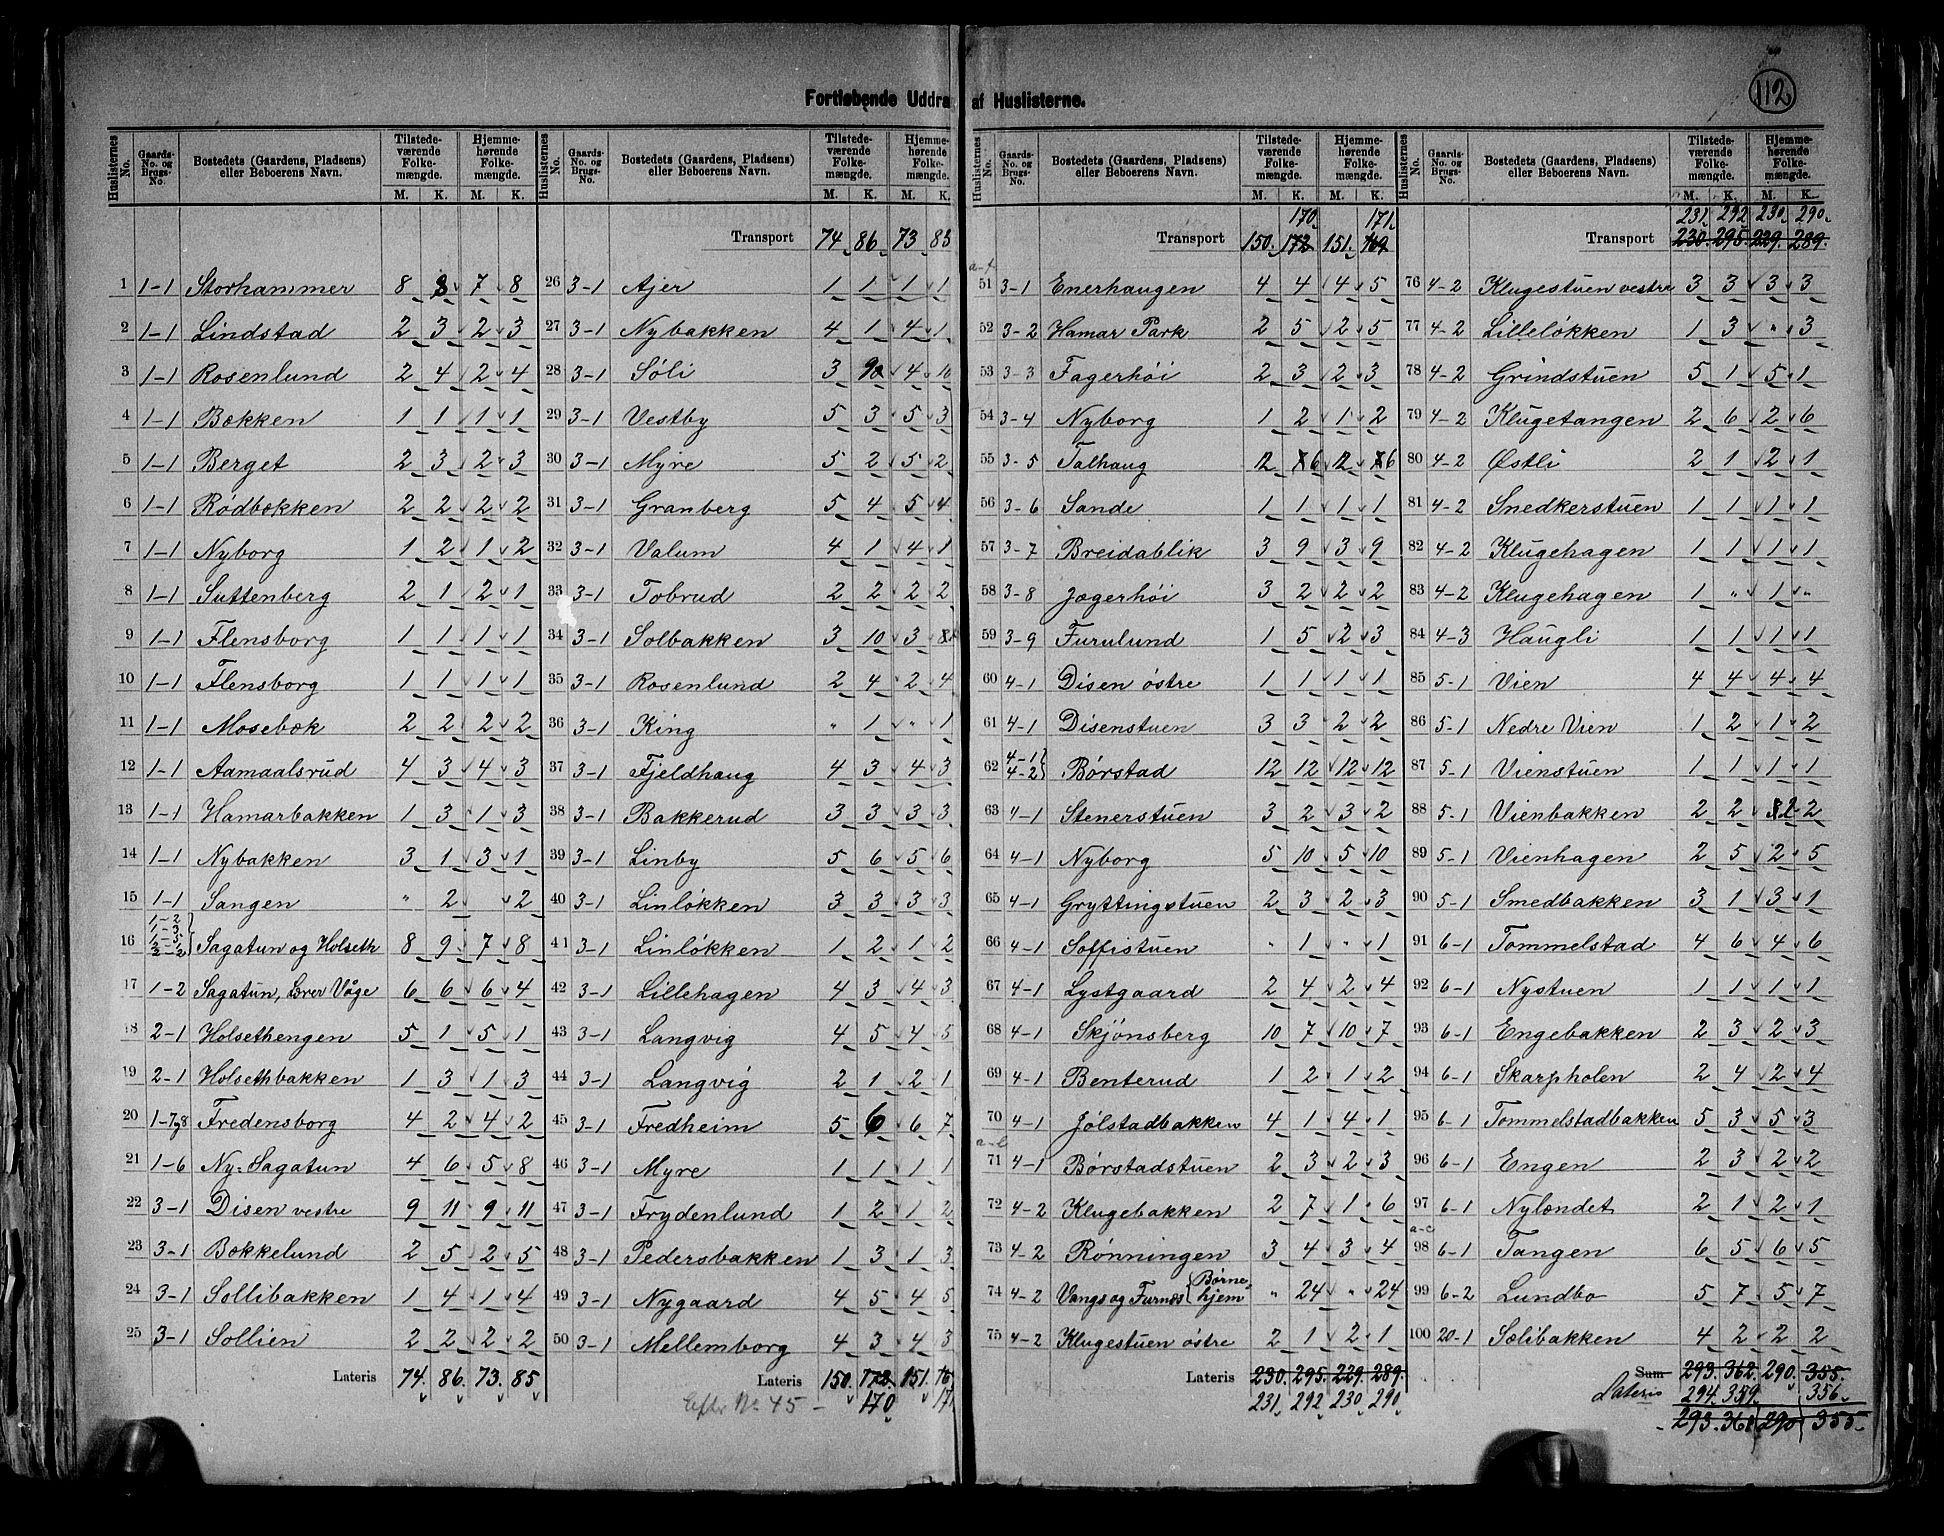 112
Fortløbende Uddra af Huslisterne.
Huslisternes No. Gaards-No. og Brugs-No. Bostedets (Gaardens, Pladsens) eller Beboerens Navn. Tilstedeværende Folkemængde. Hjemmehørende Folkemængde.
M. K. M. K.
1 1-1 Storhammer 8 8 7 8
2 1-1 Lindstad 2 3 2 3
3 1-1 Rosenlund 2 4 2 4
4 1-1 Bækken 1 1 1 1
5 1-1 Berget 2 3 2 3
6 1-1 Rødbækken 2 2 2 2
7 1-1 Nyborg 1 2 1 2
8 1-1 Suttenberg 2 1 2 1
9 1-1 Flensborg 1 1 1 1
10 1-1 Flensborg 1 1 1 1
11 1-1 Mosebæk 2 2 2 2
12 1-1 Aamaalsrud 4 3 4 3
13 1-1 Hamarbakken 1 3 1 3
14 1-1 Nybakken 3 1 3 1
15 1-1 Sangen " 2 2
16 1-2 1-3 1-5 2-2 Sagatun og Holseth 8 9 7 8
17 1-2 Sagatun, Lærer Våge 6 6 6 4
18 2-1 Holsethengen 5 1 5 1
19 2-1 Holsethbakken 1 3 1 3
20 1-7, 8 Fredensborg 4 2 4 2
21 1-6 Ny-Sagatun 4 6 5 8
22 3-1 Disen vestre 9 11 9 11
23 3-1 Bækkelund 2 5 2 5
24 3-1 Sollibakken 1 4 1 4
25 3-1 Sollien 2 2 2 2
Lateris 74. 86. 73. 85
Huslisternes No. Gaards-No. og Brugs-No. Bostedets (Gaardens, Pladsens) eller Beboerens Navn. Tilstedeværende Folkemængde. Hjemmehørende Folkemængde.
M. K. M. K.
Transport 74 86 73 85
26 3-1 Ajer 1 1 1 1
27 3-1 Nybakken 4 1 4 1
28 3-1 Søli 3 9 4 10
29 3-1 Vestby 5 3 5 3
30 3-1 Myre 5 2 5 2
31 3-1 Granberg 5 4 5 4
32 3-1 Valum 4 1 4 1
33 3-1 Tobrud 2 2 2 2
34 3-1 Solbakken 3 10 3 8
35 3-1 Rosenlund 2 4 2 4
36 3-1 King " 1 " 1
37 3-1 Fjeldhaug 4 3 4 3
38 3-1 Bakkerud 3 3 3 3
39 3-1 Linby 5 6 5 6
40 3-1 Linløkken 3 3 3 3
41 3-1 Linløkken 1 2 1 2
42 3-1 Lillehagen 4 3 4 3
43 3-1 Langvig 4 5 4 5
44 3-1 Langvig 2 1 2 1
45 3-1 Fredheim 5 6 6 7
46 3-1 Myre 1 1 1 1
47 3-1 Frydenlund 1 2 1 2
48 3-1 Pedersbakken 1 3 1 3
49 3-1 Nygaard 4 5 4 5
50 3-1 Mellemborg 4 3 4 3
Lateris 150. 172. 151. 16
Efter No 45 - 170 17
Huslisternes No. Gaards-No. og Brugs-No. Bostedets (Gaardens, Pladsens) eller Beboerens Navn. Tilstedeværende Folkemængde. Hjemmehørende Folkemængde.
M. K. M. K.
170. 171.
Transport 150. 172 151. 169
a-f
51 3-1 Enerhaugen 4 4 4 5
52 3-2 Hamar Park 2 5 2 5
53 3-3 Fagerhöi 2 3 2 3
54 3-4 Nyborg 1 2 1 2
55 3-5 Talhaug 2 6 2 6
56 3-6 Sande 1 1 1 1
57 3-7 Breidablik 3 9 3 9
58 3-8 Jægerhöi 3 2 2 2
59 3-9 Furulund 1 5 2 3
60 4-1 Disen östre 1 1 1 1
61 4-1 Disenstuen 3 3 2 2
62 4-1 4-2 Børstad 12 12 12 12
63 4-1 Stenerstuen 3 2 3 2
64 4-1 Nyborg 5 10 5 10
65 4-1 Gryttingstuen 2 3 2 3
66 4-1 Soffistuen " 1 " 1
67 4-1 Lystgaard 2 4 2 4
68 4-1 Skjønsberg 10 7 10 7
69 4-1 Benterud 1 2 1 2
70 4-1 Jølstadbakken 4 1 4 1
71 4-1 Børstadstuen 2 3 2 3
72 4-2 Klugebakken 2 7 1 6
73 4-2 Rønningen 3 4 3 4
74 4-2 Vangs og Furnæs Børnehjem " 24 " 24
75 4-2 Klugestuen østre 2 1 2 1
Lateris 230. 295. 229. 289.
231. 292 230 290
Huslisternes No. Gaards-No. og Brugs-No. Bostedets (Gaardens, Pladsens) eller Beboerens Navn. Tilstedeværende Folkemængde. Hjemmehørende Folkemængde.
M. K. M. K.
231. 292 230. 290.
Transport 230. 295. 229. 289.
76 4-2 Klugestuen vestre 3 3 3 3
77 4-2 Lilleløkken 1 3 " 3
78 4-2 Grindstuen 5 1 5 1
79 4-2 Klugetangen 2 6 2 6
80 4-2 Østli 2 1 2 1
81 4-2 Snedkerstuen 1 1 1 1
82 4-2 Klugehagen 1 1 1 1
83 4-2 Klugehagen 1 " 1 "
84 4-3 Haugli 1 1 1 1
85 5-1 Vien 4 4 4 4
86 5-1 Nedre Vien 1 2 1 2
87 5-1 Vienstuen 1 1 1 1
88 5-1 Vienbakken 2 2 2 2
89 5-1 Vienhagen 2 5 2 5
90 5-1 Smedbakken 3 1 3 1
91 6-1 Tommelstad 4 6 4 6
92 6-1 Nystuen 1 1 1 1
93 6-1 Engebakken 2 3 2 3
94 6-1 Skarpholen 2 4 2 4
95 6-1 Tommelstadbakken 5 3 5 3
96 6-1 Engen 2 3 2 2
97 6-1 Nylændet 2 1 2 1
a-c
98 6-1 Tangen 6 5 6 5
99 6-2 Lundbo 5 7 5 7
100 20-1 Sælibakken 4 2 2 2
Sum 293. 362. 290. 355.
Lateris 294. 359. 356.
293. 361 290 355.